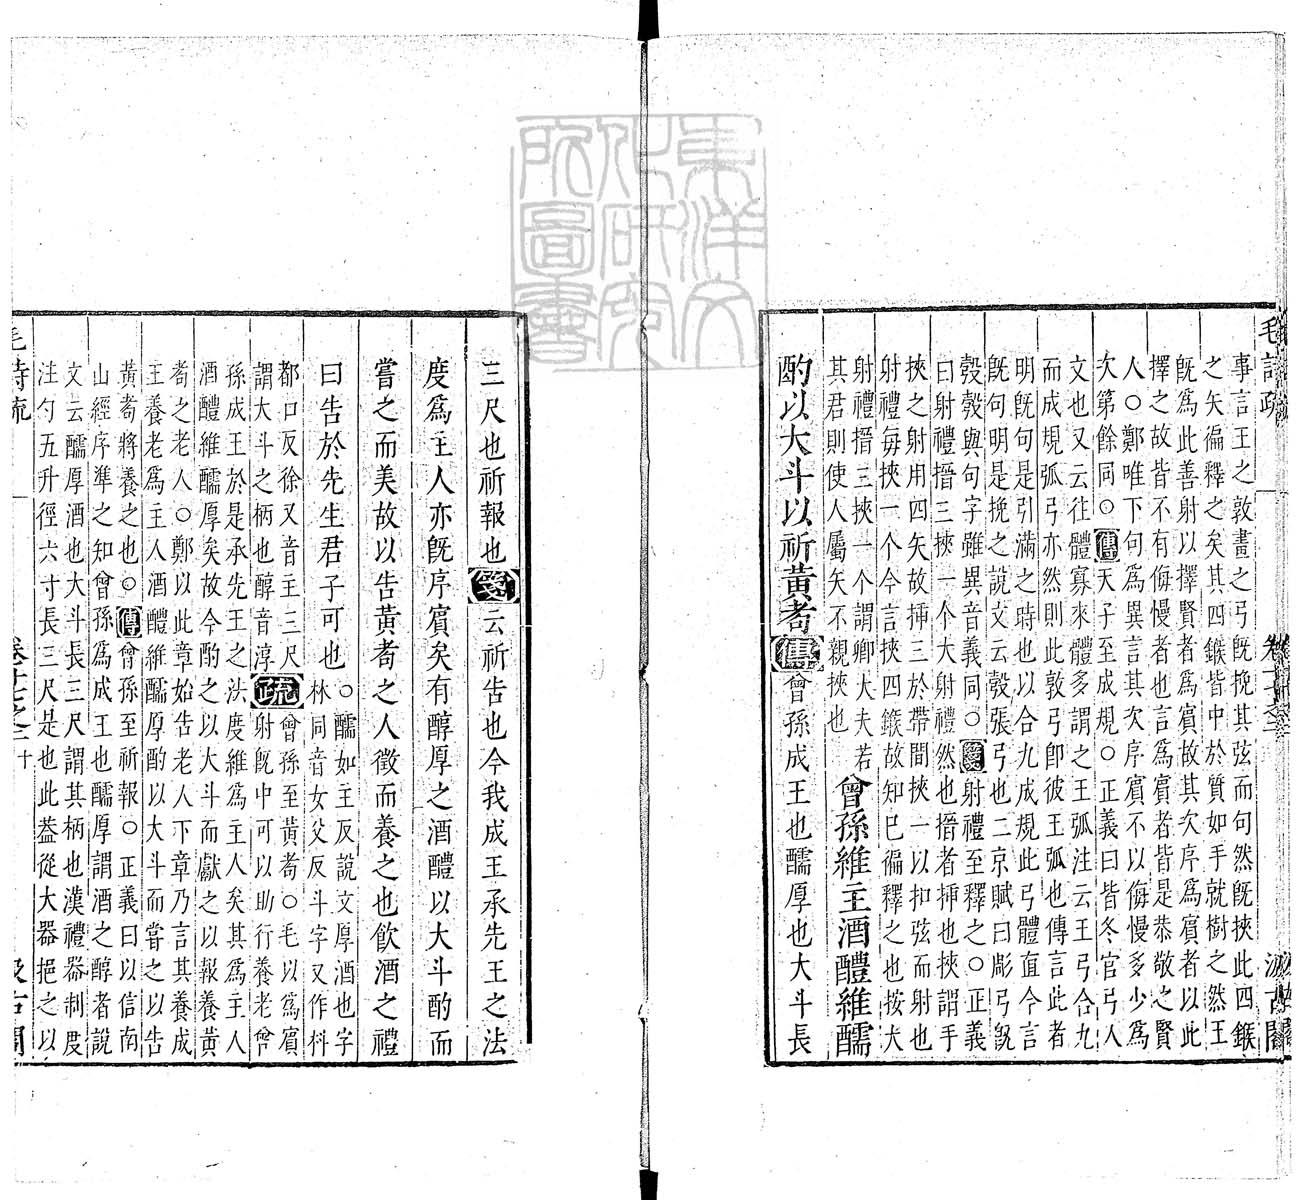 毛詩疏 卷十七之二 汲古閣
事言王之敦畫之弓旣挽其弦而句然旣挾此四鍭
之矢徧釋之矣其四鍭皆中於質如手就樹之然王
旣爲此善射以擇賢者爲賓故其次序爲賓者以此
擇之故皆不有侮慢者也言爲賓者皆是恭敬之賢
人○鄭唯下句爲異言其次序賓不以侮慢多少爲
次第餘同○傳天子至成規○正義曰皆冬官弓人
文也又云往體寡來體多謂之王弧注云王弓合九
而成規弧弓亦然則此敦弓卽彼王弧也傳言此者
明旣句是引滿之時也以合九成規此弓體直今言
旣句明是挽之說文云彀張弓也二京賦曰彫弓旣
彀彀與句字雖異音義同○箋射禮至釋之○正義
曰射禮搢三挾一个大射禮然也搢者揷也挾謂手
挾之射用四矢故揷三於帶間挾一以扣弦而射也
射禮每挾一个今言挾四鍭故知已徧釋之也按大
射禮搢三挾一个謂卿大夫若
其君則使人屬矢不親挾也
曾孫維主酒醴維醹
酌以大斗以祈黃耇傳曾孫成王也醹厚也大斗長
三尺也祈報也箋云祈告也今我成王承先王之法
度爲主人亦旣序賓矣有醇厚之酒醴以大斗酌而
嘗之而美故以告黃耇之人徵而養之也飮酒之禮
曰告於先生君子可也
○醹如主反說文厚酒也字
林同音女父反斗字又作枓
都口反徐又音主三尺
謂大斗之柄也醇音淳
疏
曾孫至黃耇○毛以爲賓
射旣中可以助行養老曾
孫成王於是承先王之法度維爲主人矣其爲主人
酒醴維醹厚矣故今酌之以大斗而獻之以報養黃
耇之老人○鄭以此章始告老人下章乃言其養成
王養老爲主人酒醴維醹厚酌以大斗而嘗之以告
黃耇將養之也○傳曾孫至祈報○正義曰以信南
山經序準之知曾孫爲成王也醹厚謂酒之醇者說
文云醹厚酒也大斗長三尺謂其柄也漢禮器制度
注勺五升徑六寸長三尺是也此葢從大器挹之以
毛詩疏 卷十七之二 十 汲古閣